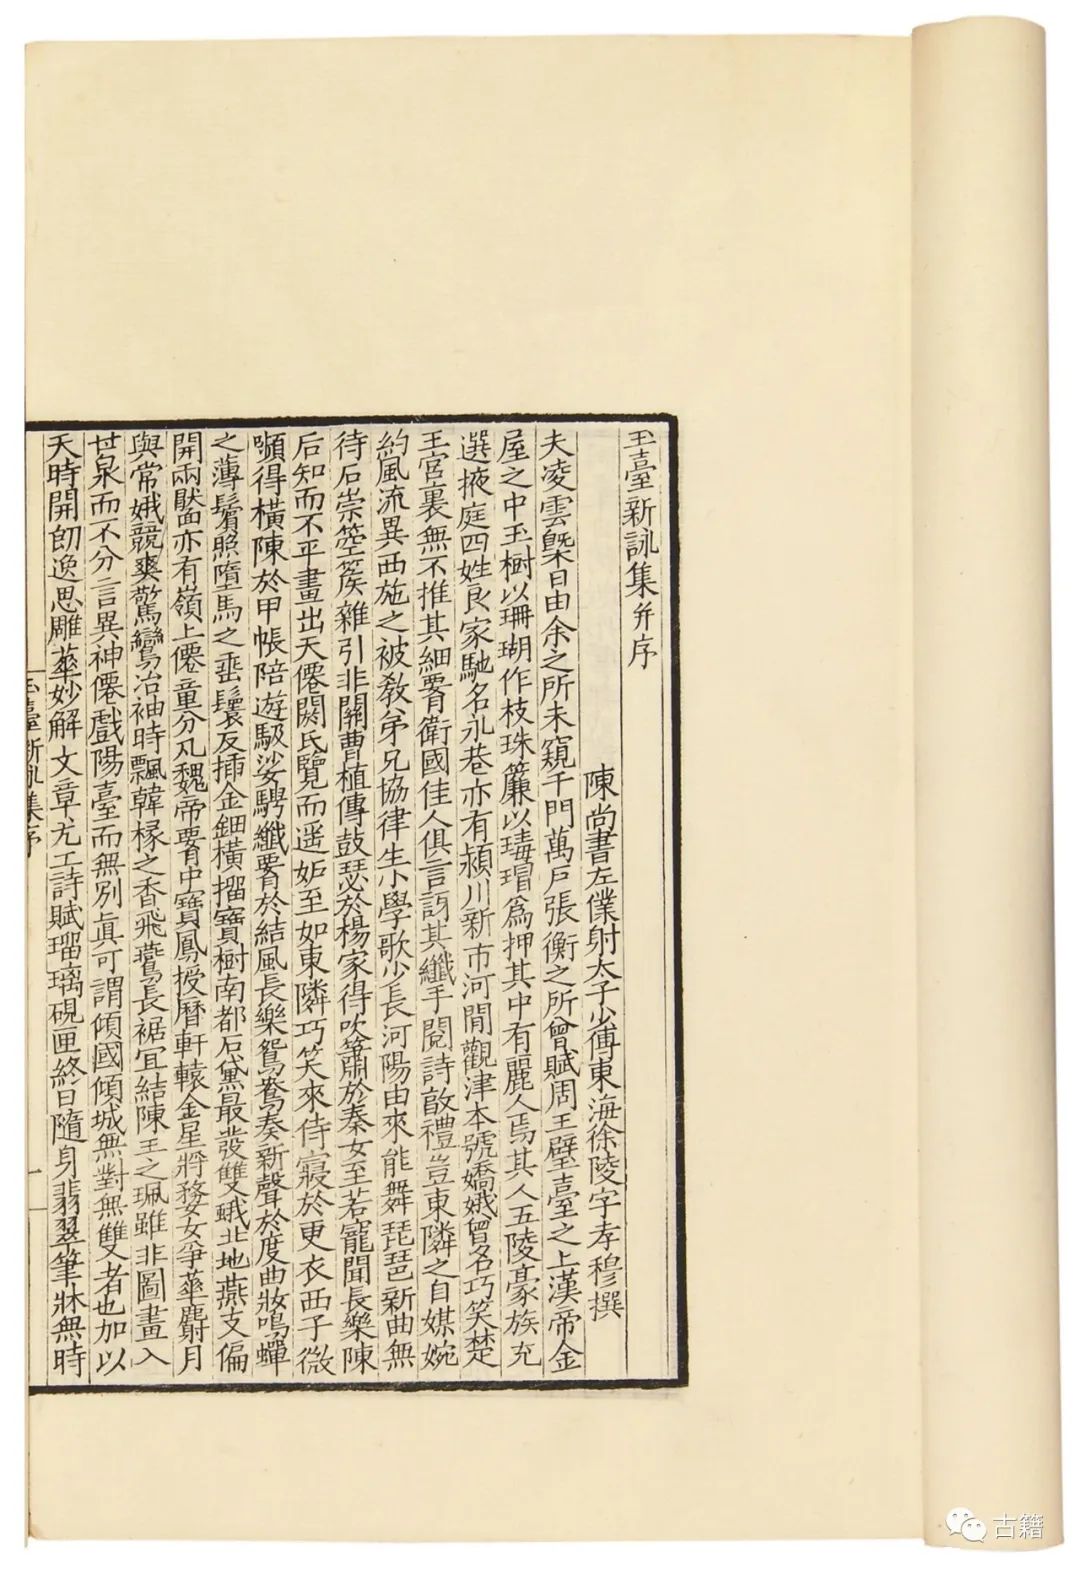 玉臺新詠集并序
陳尚書左僕射太子少傅東海徐陵字孝穆撰
夫凌雲槩日由余之所未窺千門萬戶張衡之所曾賦周王璧臺之上漢帝金
屋之中玉樹以珊瑚作枝珠簾以瑇瑁爲押其中有麗人焉其人五陵豪族充
選掖庭四姓良家馳名永巷亦有潁川新市河閒觀津本號嬌娥曾名巧笑楚
王宮裏無不推其細䙅衛國佳人俱言訝其纖手閱詩敦禮豈東隣之自媒婉
約風流異西施之被教弟兄協律生小學歌少長河陽由來能舞琵琶新曲無
待石崇箜篌雜引非關曹植傳鼓瑟於楊家得吹簫於秦女至若寵聞長樂陳
后知而不平畫出天僊閼氏覽而遥妒至如東隣巧笑來侍寢於更衣西子微
嚬得橫陳於甲帳陪遊馺娑騁纖䙅於結風長樂鴛鴦奏新聲於度曲妝鳴蟬
之薄鬢照墮馬之垂鬟反插金鈿橫搯寶樹南都石黛最發雙蛾北地燕支偏
開兩靨亦有嶺上僊童分丸魏帝䙅中寶鳳授曆軒轅金星將婺女爭華麝月
與常娥競爽驚鸞冶袖時飄韓掾之香飛鷰長裾宜結陳王之珮雖非圖畫入
甘泉而不分言異神僊戲陽臺而無別真可謂傾國傾城無對無雙者也加以
天時開朗逸思雕華妙解文章尤工詩賦瑠璃硯匣終日隨身翡翠筆牀無時
玉臺新詠集序
一
古籍